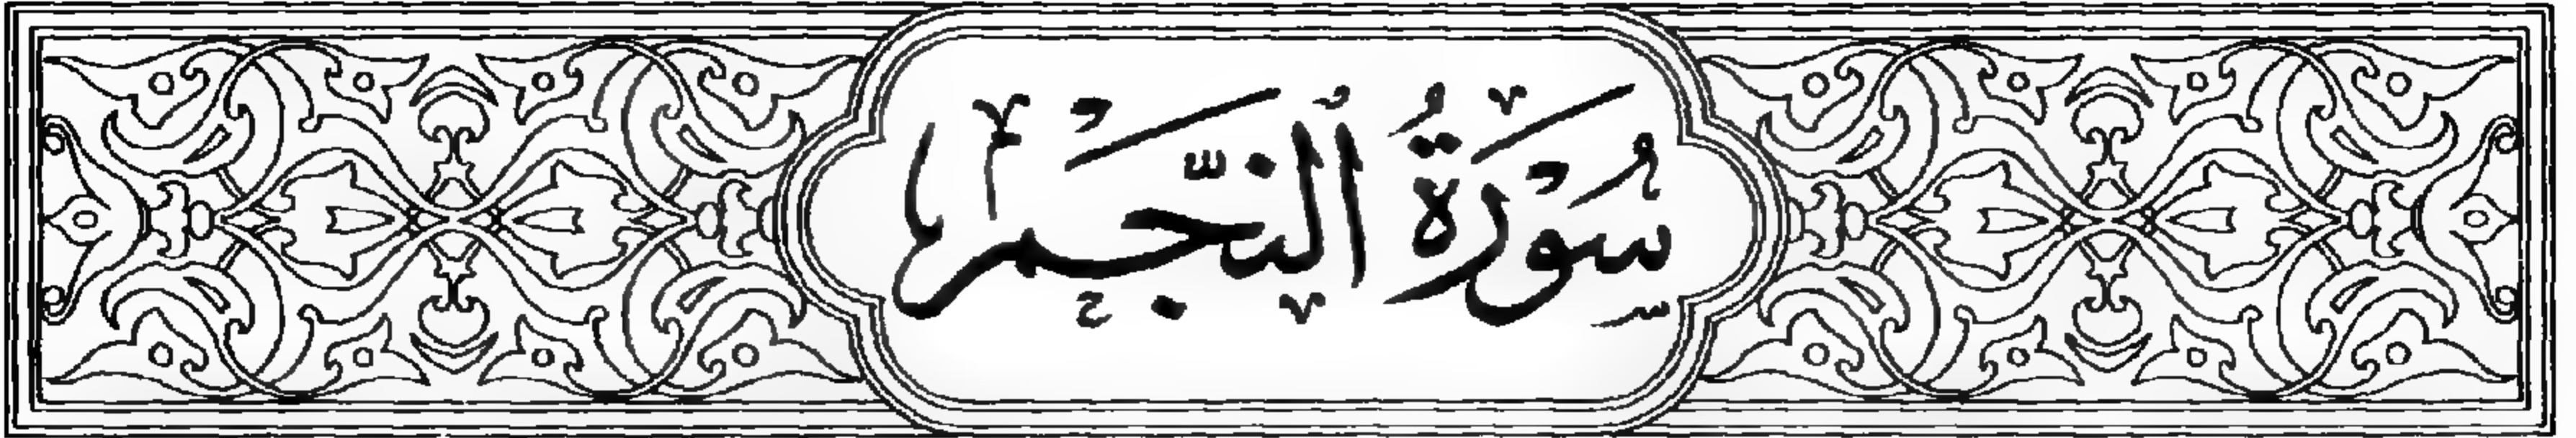 سُورَةُ ٱلنَّجْمِ